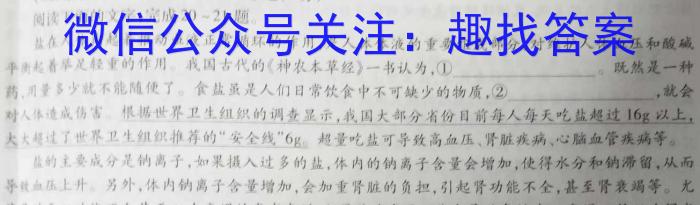 阅读下面的文字,完成20~21题。
微信公众号关注:趣找答案
盐在 体液的重要 对 压和酸碱
平衡起着举足轻重的作用。我国古代的《神农本草经》一书认为,①____________。既然是一种
药,用量多少就不能随便了。食盐虽是人们日常饮食中不可缺少的物质,②____________,就会
对人体造成伤害。根据世界卫生组织的调查显示,我国大部分省份目前每人每天吃盐超过16g以上,
大大超过了世界卫生组织推荐的“安全线”6g。超量吃盐可导致高血压、肾脏疾病、心脑血管疾病等。
盐的主要成分是钠离子,如果摄入过多的盐,体内的钠离子含量会增加,使得水分和钠滞留,从而
导致血压上升。另外,体内钠离子含量增加,会加重肾脏的负担,引起肾功能不全,甚至肾衰竭等。尤